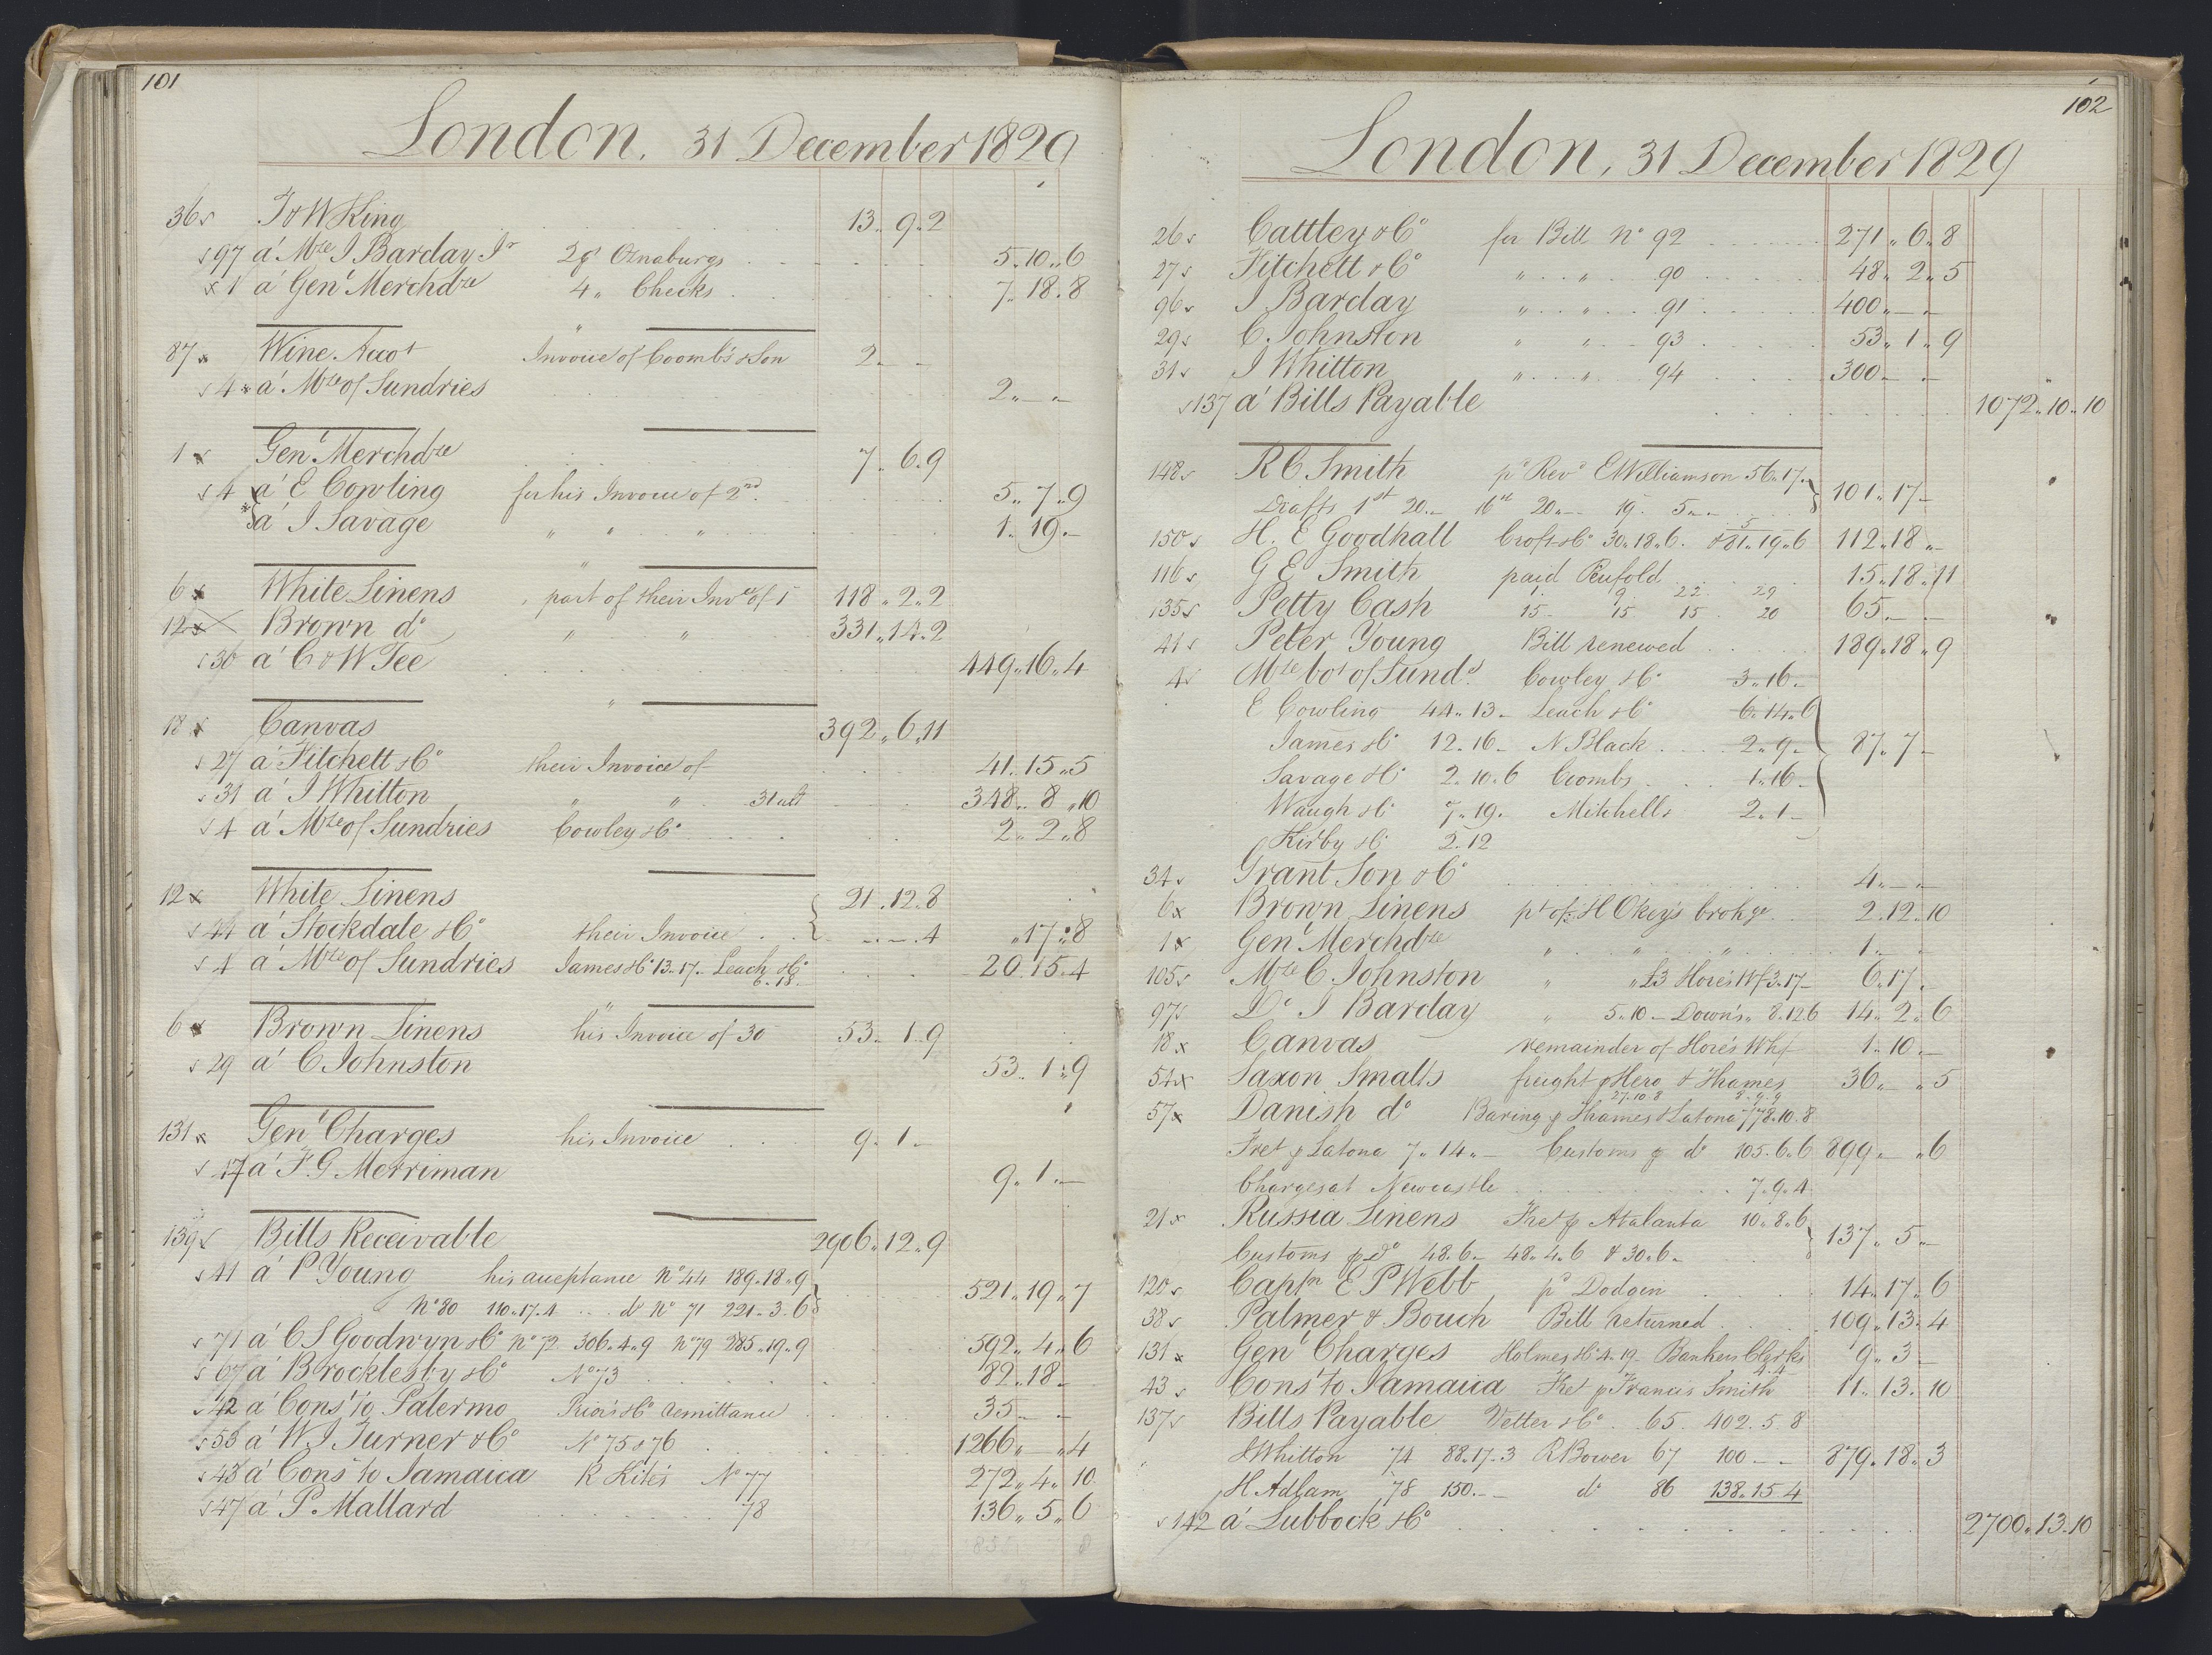 101
London, 31 December 1829
36 J & W King 13 " 9 " 2
97 a' Mze J Barclay Jr 2 ps Oznaburgs 5 " 10 " 6
1 a' Genl Merchdze 4 " Checks 7 " 18 " 8
87 Wine Accot Invoice of Coombs & Son 2 " - " -
4 a' Mze of Sundries 2 " - " -
1 Genl Merchdze 7 " 6 " 9
4 a' E Cowling for his Invoice of 2nd 5 " 7 " 9
a' J Savage " " " 1 " 19 " -
6 White Linens part of their Invce of 1 118 " 2 " 2
12 Brown do " " 331 " 14 " 2
30 a' C & W Tee 449 " 16 " 4
18 Canvas 392 " 6 " 11
27 a' Fitchett & Co their Invoice of 41 " 15 " 5
31 a' J Whitton " " 31 ult 348 " 8 " 10
4 a' Mze of Sundries Cowley & Co 2 " 2 " 8
12 White Linens 21 " 12 " 8
44 a' Stockdale & Co their Invoice " - " 4 " 17 " 8
4 a' Mze of Sundries James & Co 13 " 17 " Leach & Co 6 " 18 " 20 " 15 " 4
6 Brown Linens his Invoice of 30 53 " 1 " 9
29 a' C Johnston 53 " 1 " 9
131 Genl Charges his Invoice 9 " 1 " -
17 a' F G Merriman 9 " 1 " -
139 Bills Receivable 2906 " 12 " 9
41 a' P Young his acceptance No 44 189 " 18 " 9 521 " 19 " 7
No 80 110 " 17 " 4 do No 71 221 " 3 " 6
71 a' C S Goodwyn & Co No 72 306 " 4 " 9 No 79 285 " 19 " 9 592 " 4 " 6
67 a' Brocklesby & Co No 73 82 " 18 " -
42 a' Cons to Palermo Prior's & Co remittance 35 " - " -
53 a' W J Turner & Co No 75 & 76 1266 " - " 4
43 a' Cons to Jamaica R Kite's No 77 272 " 4 " 10
47 a' P Mallard 78 136 " 5 " 6
102
London, 31 December 1829
26 Cattley & Co for Bill No 92 271 " 6 " 8
27 Fitchett & Co " " 90 48 " 2 " 5
96 J Barclay " " 91 400 " - " -
29 C Johnston " " 93 53 " 1 " 9
31 J Whitton " " 94 300 " - " -
137 a' Bills Payable 1072 " 10 " 10
148 R C Smith pd Revd E Williamson 56 " 17 " - 101 " 17 " -
Drafts 1st 20 " - 16th 20 " - 19 " 5 " -
150 H. E Goodhall Croft & Co 30 " 18 " 6 & 81 " 19 " 6 112 " 18 " -
116 G E Smith paid Penfold 15 " 18 " 11
1 9 22 29
135 Petty Cash 15 15 15 20 65 " - " -
41 Peter Young Bill renewed 189 " 18 " 9
4 Mze bot of Sunds Cowley & Co 3 " 16 -
E Cowling 44 " 13 - Leach & Co 6 " 14 " 6
James & Co 12 " 16 - N Black 2 " 9 - 87 " 7 -
Savage & Co 2 " 10 " 6 Coombs 1 " 16 -
Waugh & Co 7 " 19 " Mitchells 2 " 1 -
Kirby & Co 2 " 12
34 Grant Son & Co 4 " - " -
6 Brown Linens pt of H Okey's brokge 2 " 12 " 10
1 Genl Merchdze " " " 1 " - " -
105 Mze C Johnston " " £3 Hore's Wf 3 " 17 - 6 " 17 " -
97 Do J Barclay " 5 " 10 - Down's " 8 " 12 6 14 " 2 " 6
18 Canvas remainder of Hore's Whf 1 " 10 " -
54 Saxon Smalts freight p Hero & Thames 36 " - " 5
27 " 10 " 8 8 " 9 " 9
57 Danish do Baring p Thames & Latona 778 " 10 " 8
Fret p Latona 7 " 14 " - Customs p do 105 " 6 " 6 899 " - " 6
Charges at Newcastle 7 " 9 " 4
21 Russia Linens Fret p Atalanta 10 " 8 " 6 137 " 5 " -
Customs p do 48 " 6 - 48 " 4 " 6 & 30 " 6 -
120 Captn E P Webb pd Dodgin 14 " 17 " 6
38 Palmer & Bouch Bill returned 109 " 13 " 4
131 Genl Charges Holmes & Co 4 " 19 - Bankers Clerks 4 " 4 - 9 " 3 -
43 Cons to Jamaica Fret p Francis Smith 11 " 13 " 10
137 Bills Payable Vetter & Co 65 402 " 5 " 8
J Whitton 74 88 " 17 " 3 R Bower 67 100 - - 879 " 18 " 3
H Adlam 78 150 " - - do 86 138 " 15 " 4
142 a' Lubbock & Co 2700 " 13 " 10